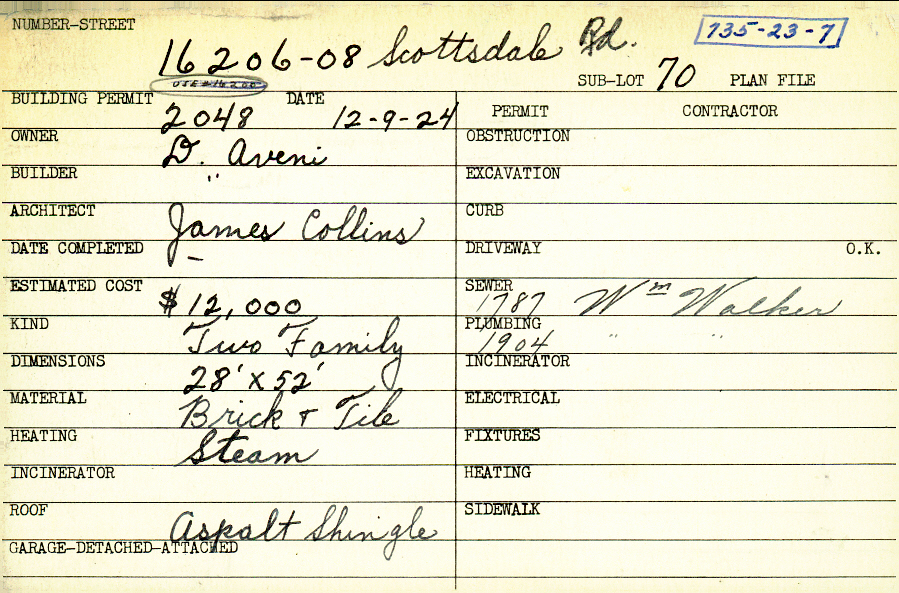 NUMBER-STREET 16206-08 Scottsdale Rd. 735-23-7
USE # 16206
SUB-LOT 70 PLAN FILE
BUILDING PERMIT 2048 DATE 12-9-24
OWNER D. Aveni
BUILDER "
ARCHITECT James Collins
DATE COMPLETED –
ESTIMATED COST $12,000
KIND Two Family
DIMENSIONS 28' X 52'
MATERIAL Brick & Tile
HEATING Steam
INCINERATOR
ROOF Aspalt Shingle
GARAGE-DETACHED-ATTACHED
PERMIT CONTRACTOR
OBSTRUCTION
EXCAVATION
CURB
DRIVEWAY O.K.
SEWER 1787 Wm Walker
PLUMBING 1904 " "
INCINERATOR
ELECTRICAL
FIXTURES
HEATING
SIDEWALK